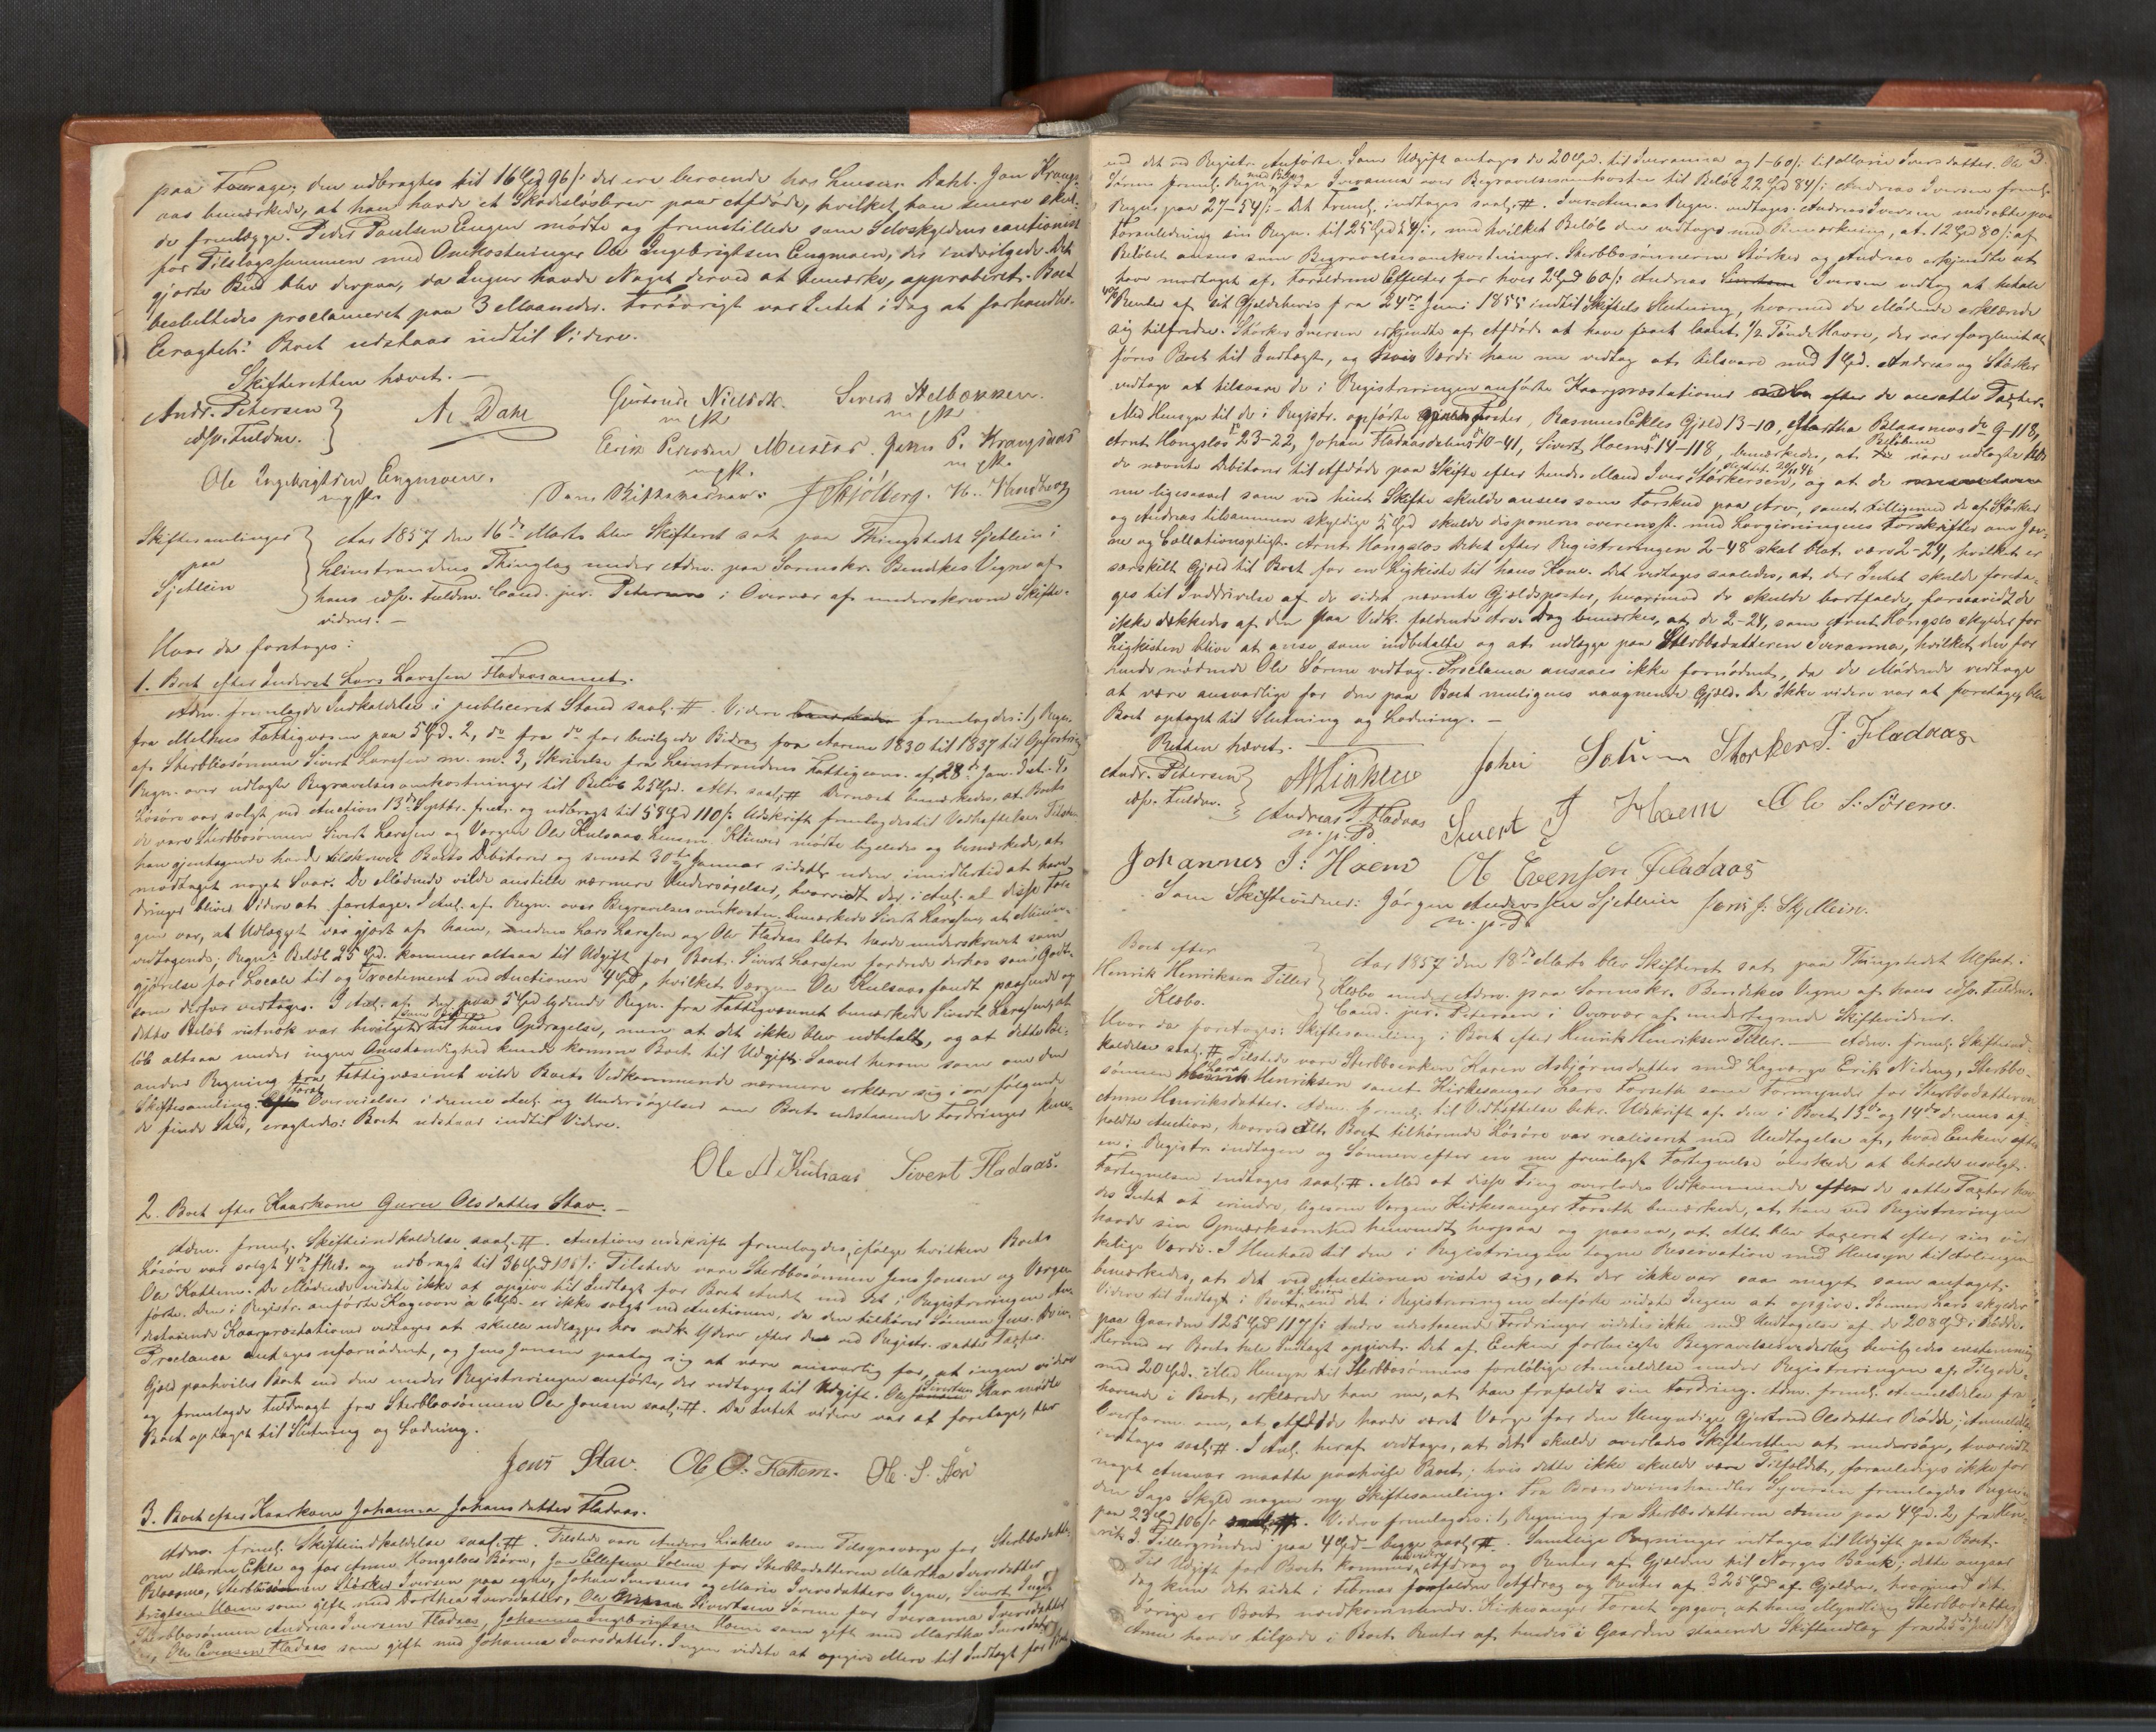 paa Fourage; den udbragtes til 16 Spd 96 /: der ere beroende hos Lensm. Dahl. Jon Krangs-
aas bemærkede, at han havde et Skadesløsbrev paa Afdøde, hvilket han senere skul-
de fremlægge. Peder Paulsen Engen mødte og fremstillede som Selvskyldner cautionist
for Tilslagssummen med Omkostninger Ole Ingebrigtsen Engmoen, der indvilgede. Det
gjorte Bud blev derpaa, da Ingen havde Noget derved at bemærke, approberet. Boet
besluttedes proclameret paa 3 Maaneder. Forøvrigt var Intet i Dag at forhandle.
Eragtet: Boet udstaar indtil Videre.
Skifteretten hævet. —
Andr. Petersen
edsv. Fuldm.
A. Dahl
Gjertrude Nielsdtr.
m. f. P.
Sivert
Erik Pedersen
m. f. P.
Jens P. Krangsaas
m. f. P.
Ole Ingebrigtsen Engmoen.
m. f. P.
Som Skiftevidner: J Skjølberg.
Skiftesamlinger
paa
Sjetlein
Aar 1857 den 16de Marts blev Skifteret sat paa Thingstedet Sjetlein i
Leinstrandens Thinglag under Adm. paa Sorenskr. Bendekes Vegne af
hans edsv. Fuldm. Cand. jur. Petersen i Overvær af underskrevne Skifte-
vidner. —
Hvor da foretoges:
1. Boet efter Inderst Lars Larssen Fladaasaunet.
Adm. fremlagde Indkaldelse i publiceret Stand saal. #. Videre fremlagdes: 1, Regn.
fra Melhus Fattigvæsen paa 5 Spd. 2, do fra do for bevilgede Bidrag fra Aarene 1830 til 1837 til Opfostring
af Sterbbosønnen Sivert Larssen m. m. 3, Skrivelse fra Leinstrandens Fattigcom. af 28de Jan. d. A.
Regn. over udlagte Begravelsesomkostninger til Beløb 25 Spd. Alt saal. # Dernæst bemærkedes, at Boets
Løsøre var solgt ved Auction 13de Septbr. f. A. og udbragt til 58 Spd 110 /: Udskrift fremlagdes til Vedheftelse. Tilste-
de vare Sterbbosønnen Sivert Larssen og Værgen Ole Kulsaas. Lensm. Klüwer mødte ligeledes og bemærkede, at
han gjentagende havde tilskrevet Boets Debitorer og senest 30te Januar sidstl. uden imidlertid at have
modtaget noget Svar. De Mødende vilde anstille nærmere Undersøgelser, hvorvidt der i Anl. af disse For-
dringer bliver Videre at foretage. I Anl. af Regn. over Begravelsesomkostn. bemærkede Sivert Larssen, at Menin-
gen var, at Udlægget var gjort af ham, medens Lars Larssen og Ole Fladaas blot havde underskrevet som
vedtagende; Regn.s Beløb 25 Spd. kommer altsaa til Udgift for Boet. Sivert Larssen fordrede derhos som Godt-
gjørelse for Locale til og Tractement ved Auctionen 4 Spd, hvilket Værgen Ole Kulsaas fandt passende og
som derfor vedtoges. I Anl. af den paa 5 Spd lydende Regn. fra Fattigvæsenet bemærkede Sivert Larssen, at
dette Beløb vistnok var bevilget som Bidrag til hans Opdragelse, men at det ikke blev udbetalt, og at dette Be-
løb altsaa under ingen Omstændighed kunde komme Boet til Udgift. Saavel herom som om den
anden Regning fra Fattigvæsenet vilde Boets Vedkommende nærmere erklære sig i en følgende
Skiftesamling. Forat Overveielser i denne Anl. og Undersøgelser om Boets udestaaende Fordringer kun-
de finde Sted, eragtedes: Boet udstaar indtil Videre.
Ole A Kulsaas Sivert Fladaas.
2. Boet efter Kaarkone Guru Olsdatter Stav. —
Adm. freml. Skifteindkaldelse saal. #. Auctionsudskrift fremlagdes, ifølge hvilken Boets
Løsøre var solgt 4de f. Md. og udbragt til 36 Spd 105 /: Tilstede vare Sterbbosønnen Jens Jonsen og Værgen
Ole Kattem. De Mødende vidste ikke at opgive til Indtægt for Boet Andet end det i Registreringen An-
førte. Den i Registr. anførte Kagovn à 6 Spd. er ikke solgt ved Auctionen, da den tilhører Sønnen Jens.
destaaende Kaarpræstationer vedtoges at skulle udlægges hos vedk. Ydere efter den ved Registr. satte Taxter.
Proclama ansages ufornødent, og Jens Jonsen paatog sig at være ansvarlig for, at ingen videre
Gjæld paahviler Boet end den under Registreringen anførte, der vedtoges til Udgift. Ole Sivertsen Stav mødte
og fremlagde Fuldmagt fra Sterbbosønnen Ole Jonsen saal. #. Da Intet videre var at foretage, blev
Boet optaget til Slutning og Lodning.
Jens Stav. Ole O. Kattem. Ole. S. Stav
3. Boet efter Kaarkone Johanna Johansdatter Fladaas.
Adm. freml. Skifteindkaldelse saal. #. Tilstede vare Anders Liaklev som Tilsynsværge for Sterbbodatte-
ren Maren Ekle og for Anne Hongsloes Børn, Jon Ellefsen Solem for Sterbbodatteren Martha Iversdatter
Blaasmo, Sterbbosønnen Størker Iversen paa egne, Johan Iversens og Marie Iversdatters Vegne, Sivert Inge-
brigtsen Hoem som gift med Dorthea Iversdatter, Ole Sivertsen Sørem for Iveranna Iversdatter
Sterbbosønnen Andreas Iversen Fladaas, Johannes Ingebrigtsen Hoem som gift med Martha Iversdatter
og Ole Evensen Fladaas som gift med Johanna Iversdatter. Ingen vidste at opgive Mere til Indtægt for Boet
3.
end det ved Registr. Anførte. Som Udgift antages de 20 Spd. til Iveranna og 1-60 /: til Marie Iversdatter. Ole
Sørem freml. Regn. med Bilag fra Iveranna over Begravelsesomkostn. til Beløb 22 Spd 84 /: Andreas Iversen freml.
Regn. paa 27-54 /: - Det Freml. indtages saal. #. Iverannas Regn. vedtoges. Andreas Iversen nedsatte paa
Foranledning sin Regn. til 25 Spd 24 /:, med hvilket Beløb den vedtoges med Bemærkning, at 12 Spd 80 /: af
Beløbet ansees som Begravelsesomkostninger. Sterbbosønnerne Størker og Andreas erkjendte at
have modtaget af Forældrene Effecter for hver 2 Spd 60 /: Andreas Iversen vedtog at betale
4 % Renter af sit Gjeldsbevis fra 24de Juni 1855 indtil Skiftets Slutning, hvormed de Mødende erklærede
sig tilfredse. Størker Iversen erkjendte af Afdøde at have faaet laant 1/2 Tønde Havre, der var forglemt at
føres Boet til Indtægt, og hvis Værdi han nu vedtog at tilsvare med 1 Spd. Andreas og Størker
vedtoge at tilsvare de i Registreringen anførte Kaarpræstationer efter de ansatte Taxter.
Med Hensyn til de i Registr. opførte Poster, Rasmus Ekles Gjeld 13-10, Martha Blaasmos do 9-118,
Arnt Hongslos do 23-22, Johan Fladaasdalens do 10-41, Sivert Hoems do 14-118, bemærkedes, at Beløbene vare udlagte hos
de nævnte Debitorer til Afdøde paa Skifte efter hendes Mand Iver Størkersen, og at de
nu ligesaavel som ved hint Skifte skulde ansees som Forskud paa Arv, samt tilligemed de af Størker
og Andreas tilsammen skyldige 5 Spd skulde disponeres overensst. med Lovgivningens Forskrifter om Jev-
ne og Collationspligt. Arnt Hongslos Debet efter Registreringen 2-48 skal blot være 2-24, hvilket er
særskilt Gjeld til Boet for en Ligkiste til hans Kone. Det vedtoges saaledes, at der Intet skulde foreta-
ges til Inddrivelse af de sidst nævnte Gjældsposter, hvorimod de skulde bortfalde, forsaavidt de
ikke dækkedes af den paa Vedk. faldende Arv. Dog bemærkes, at de 2-24, som Arnt Hongslo skylder for
Ligkisten blive at anse som indbetalte og at udlægge paa Sterbbodatteren Iveranna, hvilket den for
hende mødende Ole Sørem vedtog. Proclama ansaaes ikke fornødent, da de Mødende vedtoge
at være ansvarlige for den paa Boet muligens vaagnende Gjæld. Da ikke videre var at foretage, blev
Boet optaget til Slutning og Lodning. —
Retten hævet. —
Andr. Petersen
edsv. Fuldm.
ALiaklev John Solem Størker I. Fladaas
Andreas I Fladaas
m. p. P.
Sivert I Hoem Ole S. Sørem.
Johannes I: Hoem Ole Evensen Fladaas
Som Skiftevidner: Jørgen Anderssen Sjetlein Jens J: Skjetlein.
m. p. P.
Boet efter
Henrik Henriksen Tiller
Klæbo.
Aar 1857 den 18de Marts blev Skifteret sat paa Thingstedet Ulset i
Klæbo under Adm. paa Sorenskr. Bendekes Vegne af hans edsv. Fuldm.
Cand. jur. Petersen i Overvær af undertegnede Skiftevidner.
Hvor da foretoges: Skiftesamling i Boet efter Henrik Henriksen Tiller. — Adm. freml. Skifteind-
kaldelse saal. #. Tilstede vare Sterbboenken Karen Asbjørnsdatter med Lagværge Erik Niding, Sterbbo-
sønnen Lars Henriksen samt Kirkesanger Lars Forseth som Formynder for Sterbbodatteren
Anne Henriksdatter. Adm. freml. til Vedheftelse bekr. Udskrift af den i Boet 13de og 14de dennes af-
holdte Auction, hvorved Alt Boet tilhørende Løsøre var realiseret med Undtagelse af, hvad Enken efter
en i Registr. indtagen og Sønnen efter en nu fremlagt Fortegnelse ønskede at beholde usolgt.
Fortegnelsen indtages saal. #. Mod at disse Ting overlodes Vedkommende efter de satte Taxter hav-
des Intet at erindre, ligesom Værgen Kirkesanger Forseth bemærkede, at han ved Registreringen
havde sin Opmærksomhed henvendt herpaa og paasaa, at Alt blev taxeret efter sin vir-
kelige Værdi. I Henhold til den i Registreringen tagne Reservation med Hensyn til Avlingen
bemærkedes, at det ved Auctionen viste sig, at der ikke var saa meget som antaget.
Videre til Indtægt i Boet end det i Registreringen Anførte vidste Ingen at opgive. Sønnen Lars skylder
paa Gaarden 125 Spd 117 /: Andre udestaaende Fordringer vidstes ikke med Undtagelse af de 208 Spd i Rødde.
Hermed er Boets hele Indtægt opgivet. Det af Enken forlangte Begravelsesvederlag bevilgedes enstemmig
med 20 Spd. - Med Hensyn til Sterbbosønnens foreløbige Anmeldelse under Registreringen af Tilgode-
havende i Boet, erklærede han nu, at han frafaldt sin Fordring. Adm. freml. Anmeldelse fra
Overform. om, at Afdøde havde været Værge for den Umyndige Gjertrud Olsdatter Rødde; Anmeldelsen
indtages saal. #. I Anl. heraf vedtoges, at det skulde overlades Skifteretten at undersøge, hvorvidt
noget Ansvar maatte paahvile Boet; hvis dette ikke skulde være Tilfældet, foranlediges ikke for
den Sags Skyld nogen ny Skiftesamling. Fra Brændevinshandler Syversen fremlagdes Regning
paa 23 Spd 106 /: Videre fremlagdes: 1, Regning fra Sterbbodatteren Anne paa 4 Spd. 2, fra Hen-
rik J. Tillergrinden paa 4 Spd - begge saal. #. Samtlige Regninger vedtoges til Udgift paa Boet.
Til Udgift for Boet kommer Afdrag og Renter af Gjælden til Norges Bank; dette angaar
dog kun det sidst i Februar forfaldne Afdrag og Renter af 325 Spd af Gjælden, hvorimod det
Øvrige er Boets uvedkommende. Kirkesanger Forset opgav, at hans Myndling Sterbbodatteren
Anne havde tilgode i Boet Renter af hendes i Gaarden staaende Skifteudlæg fra